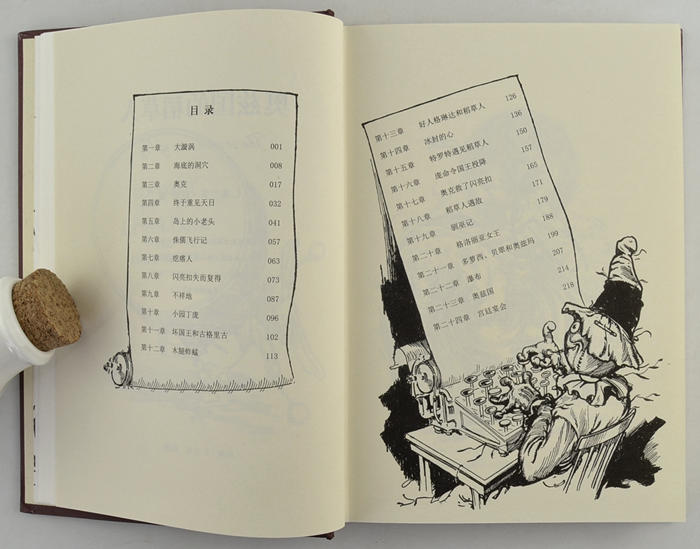 目录
第一章 大漩涡 001
第二章 海底的洞穴 008
第三章 奥克 017
第四章 终于重见天日 032
第五章 岛上的小老头 041
第六章 侏儒飞行记 057
第七章 疙瘩人 063
第八章 闪亮扣失而复得 073
第九章 不祥地 087
第十章 小园丁庞 096
第十一章 坏国王和古格里古 102
第十二章 木腿蚱蜢 113
第十三章 好人格琳达和稻草人 126
第十四章 冰封的心 136
第十五章 特罗特遇见稻草人 150
第十六章 庞命令国王投降 157
第十七章 奥克救了闪亮扣 165
第十八章 稻草人遇敌 171
第十九章 驯巫记 179
第二十章 格洛丽亚女王 188
第二十一章 多罗西、贝翠和奥兹玛 199
第二十二章 瀑布 207
第二十三章 奥兹国 214
第二十四章 宫廷宴会 218